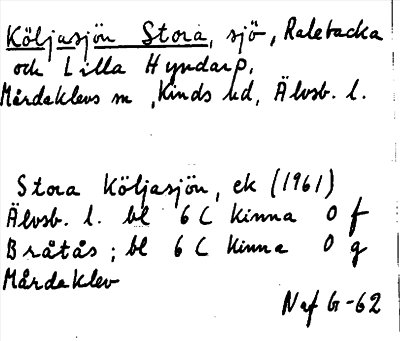 Köljasjön Stora, sjö, Raletacka
och Lilla Hyndarp,
Mårdaklevs sn, Kinds hd, Älvsb. l.
Stora Köljasjön, ek (1961)
Älvsb. l. bl 6 C Kinna 0 f
Bråtås; bl 6 C Kinna 0 g
Mårdaklev
Naf G-62